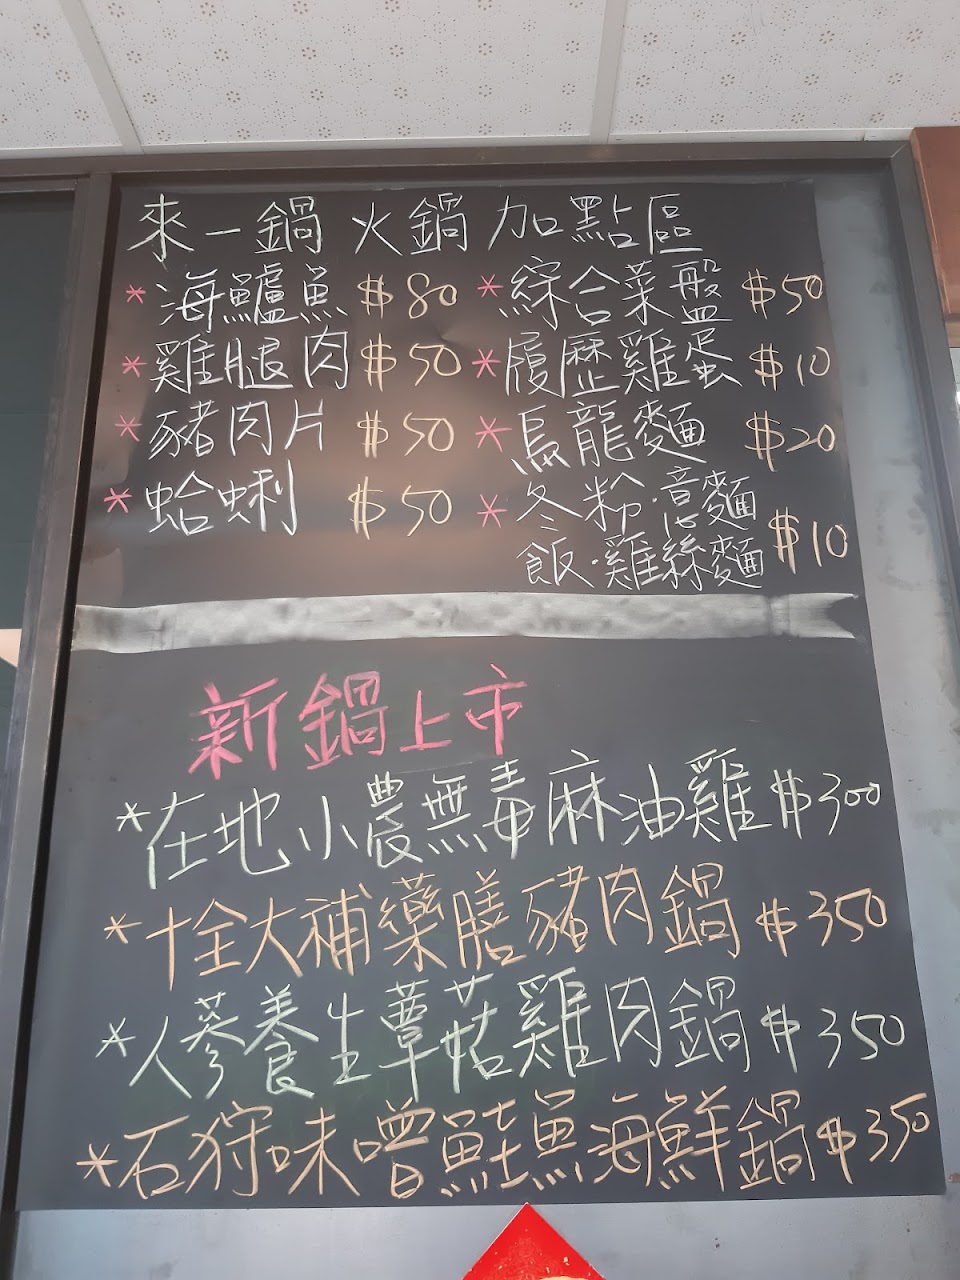 來一鍋 火鍋 加點區
*海鱸魚 $80
*雞腿肉 $50
*豬肉片 $50
*蛤蜊 $50
*綜合菜盤 $50
*履歷雞蛋 $10
*烏龍麵 $20
*冬粉.意麵
飯.雞絲麵 $10
新鍋上市
*在地小農無毒麻油雞 $300
*十全大補藥膳豬肉鍋 $350
*人蔘養生蕈菇雞肉鍋 $350
*石狩味噌鮭魚海鮮鍋 $350